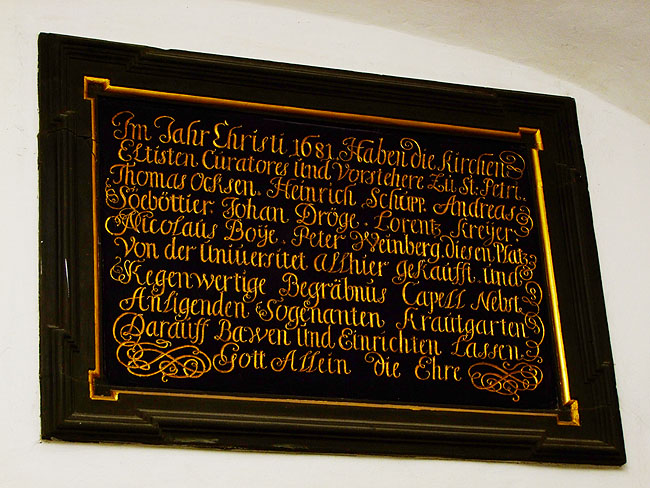 Im Jahr Christi 1681. Haben die Kirchen
Eltisten Curatores und Vorstehere Zu St. Petri.
Thomas Ocksen. Heinrich Schupp. Andreas
Soeböttier. Johan Dröge. Lorentz Kreÿer
Nicolaus Boÿe. Peter Weinberg. diesen Platz
Von der Universitet allhier gekaufft. und
Kegenwertige Begräbnus Capell Nebst
Anligenden Sogenanten Krautgarten
Darauff Bawen und Einrichten Lassen.
Gott Allein die Ehre